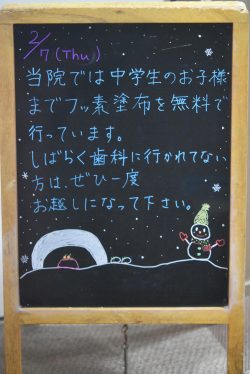 2/7 (Thu)
当院では中学生のお子様
までフッ素塗布を無料で
行っています。
しばらく歯科に行かれてない
方は、ぜひ一度
お越しになって下さい。